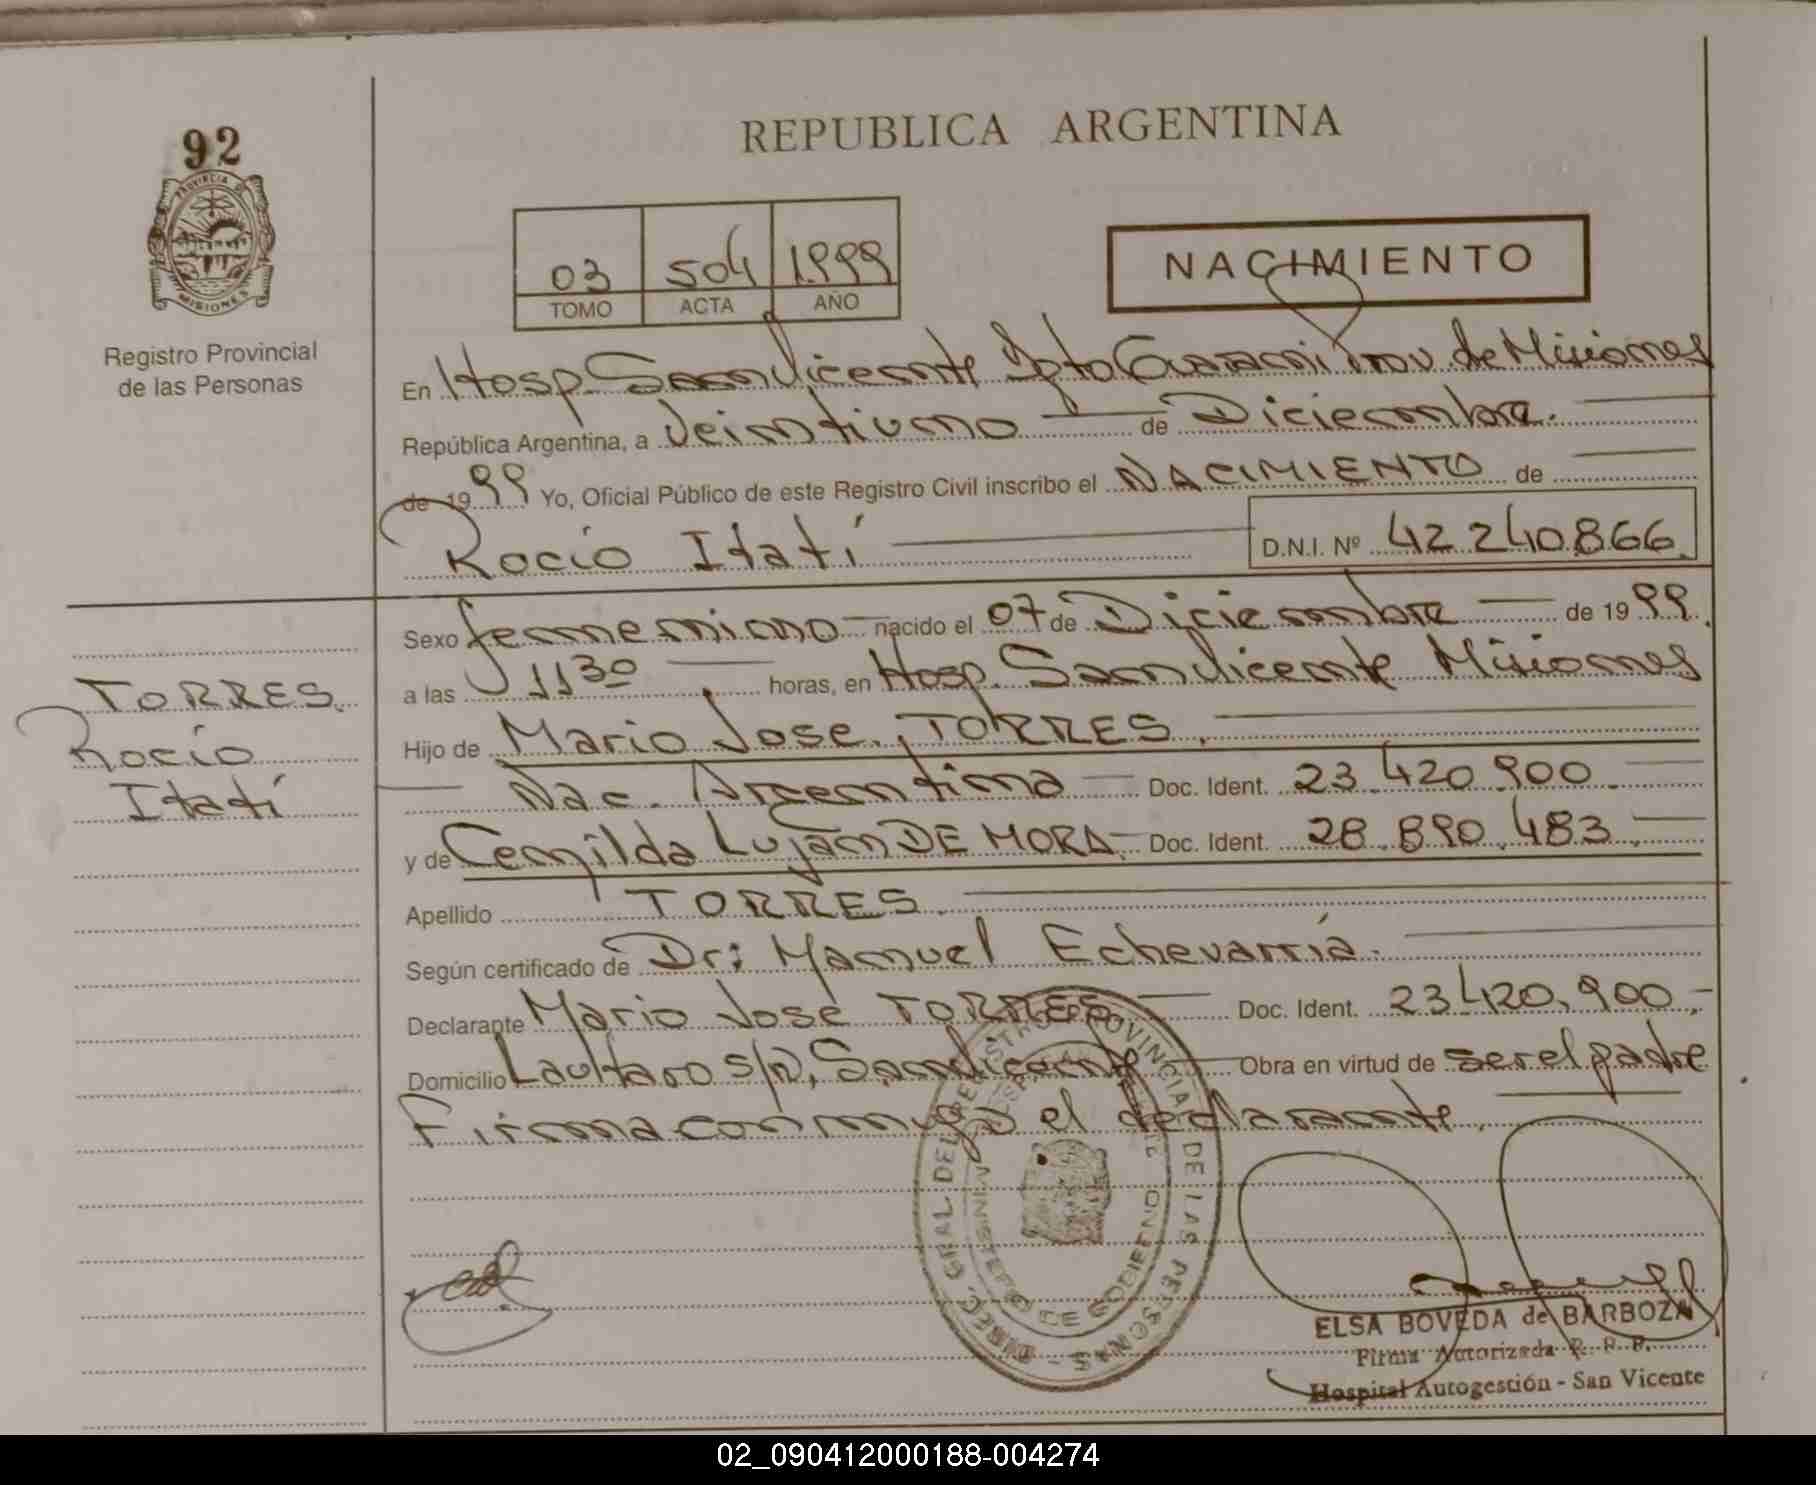 92
PROVINCIA DE
MISIONES
Registro Provincial
de las Personas
REPUBLICA ARGENTINA
03 504 1.999
TOMO ACTA AÑO
NACIMIENTO
En Hosp. San Vicente Dpto Guarani Prov. de Misiones
República Argentina, a Veintiuno de Diciembre.
de 1999 Yo, Oficial Público de este Registro Civil inscribo el NACIMIENTO de
Rocío Itatí D.N.I. Nº 42 240.866.
Sexo femenino nacido el 07 de Diciembre de 1999.
a las 11 30 horas, en Hosp. San Vicente Misiones
Hijo de Mario Jose, TORRES.
Nac. Argentina Doc. Ident. 23.420.900
y de Lujan DE MORA. Doc. Ident. 28.890.483.
Apellido TORRES.
Según certificado de Dr: Manuel Echevarría.
Declarante Mario José TORRES Doc. Ident. 23.420.900.-
Domicilio Lautaro s/n, San Vicente Obra en virtud de ser el padre
Firma conmigo el declarante.
TORRES.
Rocío
Itatí
DIREC. GRAL DEL REGISTRO PROVINCIAL DE LAS PERSONAS
ELSA BOVEDA de BARBOZA
Firma Autorizada R. P. P.
Hospital Autogestión - San Vicente
02_090412000188-004274